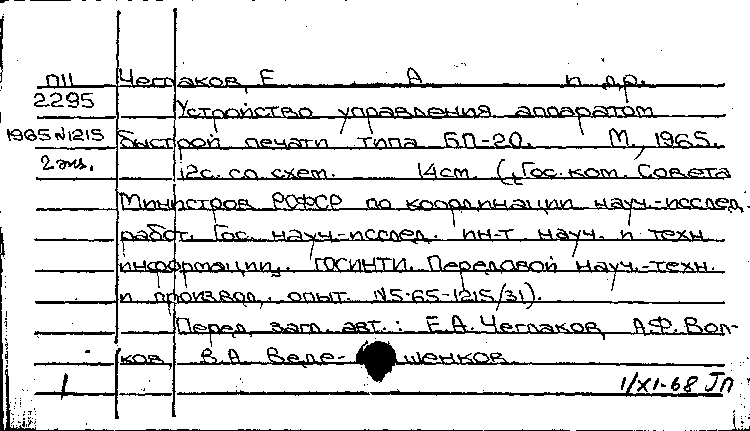 П11 Чеглаков, Е А и др.
2295 Устройство управления аппаратом
1965 №1215 быстрой печати типа БП-20. М., 1965.
2 экз. 12с. со схем. 14см. (Гос. ком. Совета
Министров РСФСР по координации науч.-исслед.
работ. Гос. науч-исслед. ин-т науч. и техн
информации. ГОСИНТИ. Передовой науч.-техн.
и производ. опыт. №5-65-1215/31).
Перед загл. авт.: Е.А. Чеглаков, А.Ф. Вол-
ков, В.А. Веде- шенков
1/XI-68 ГП